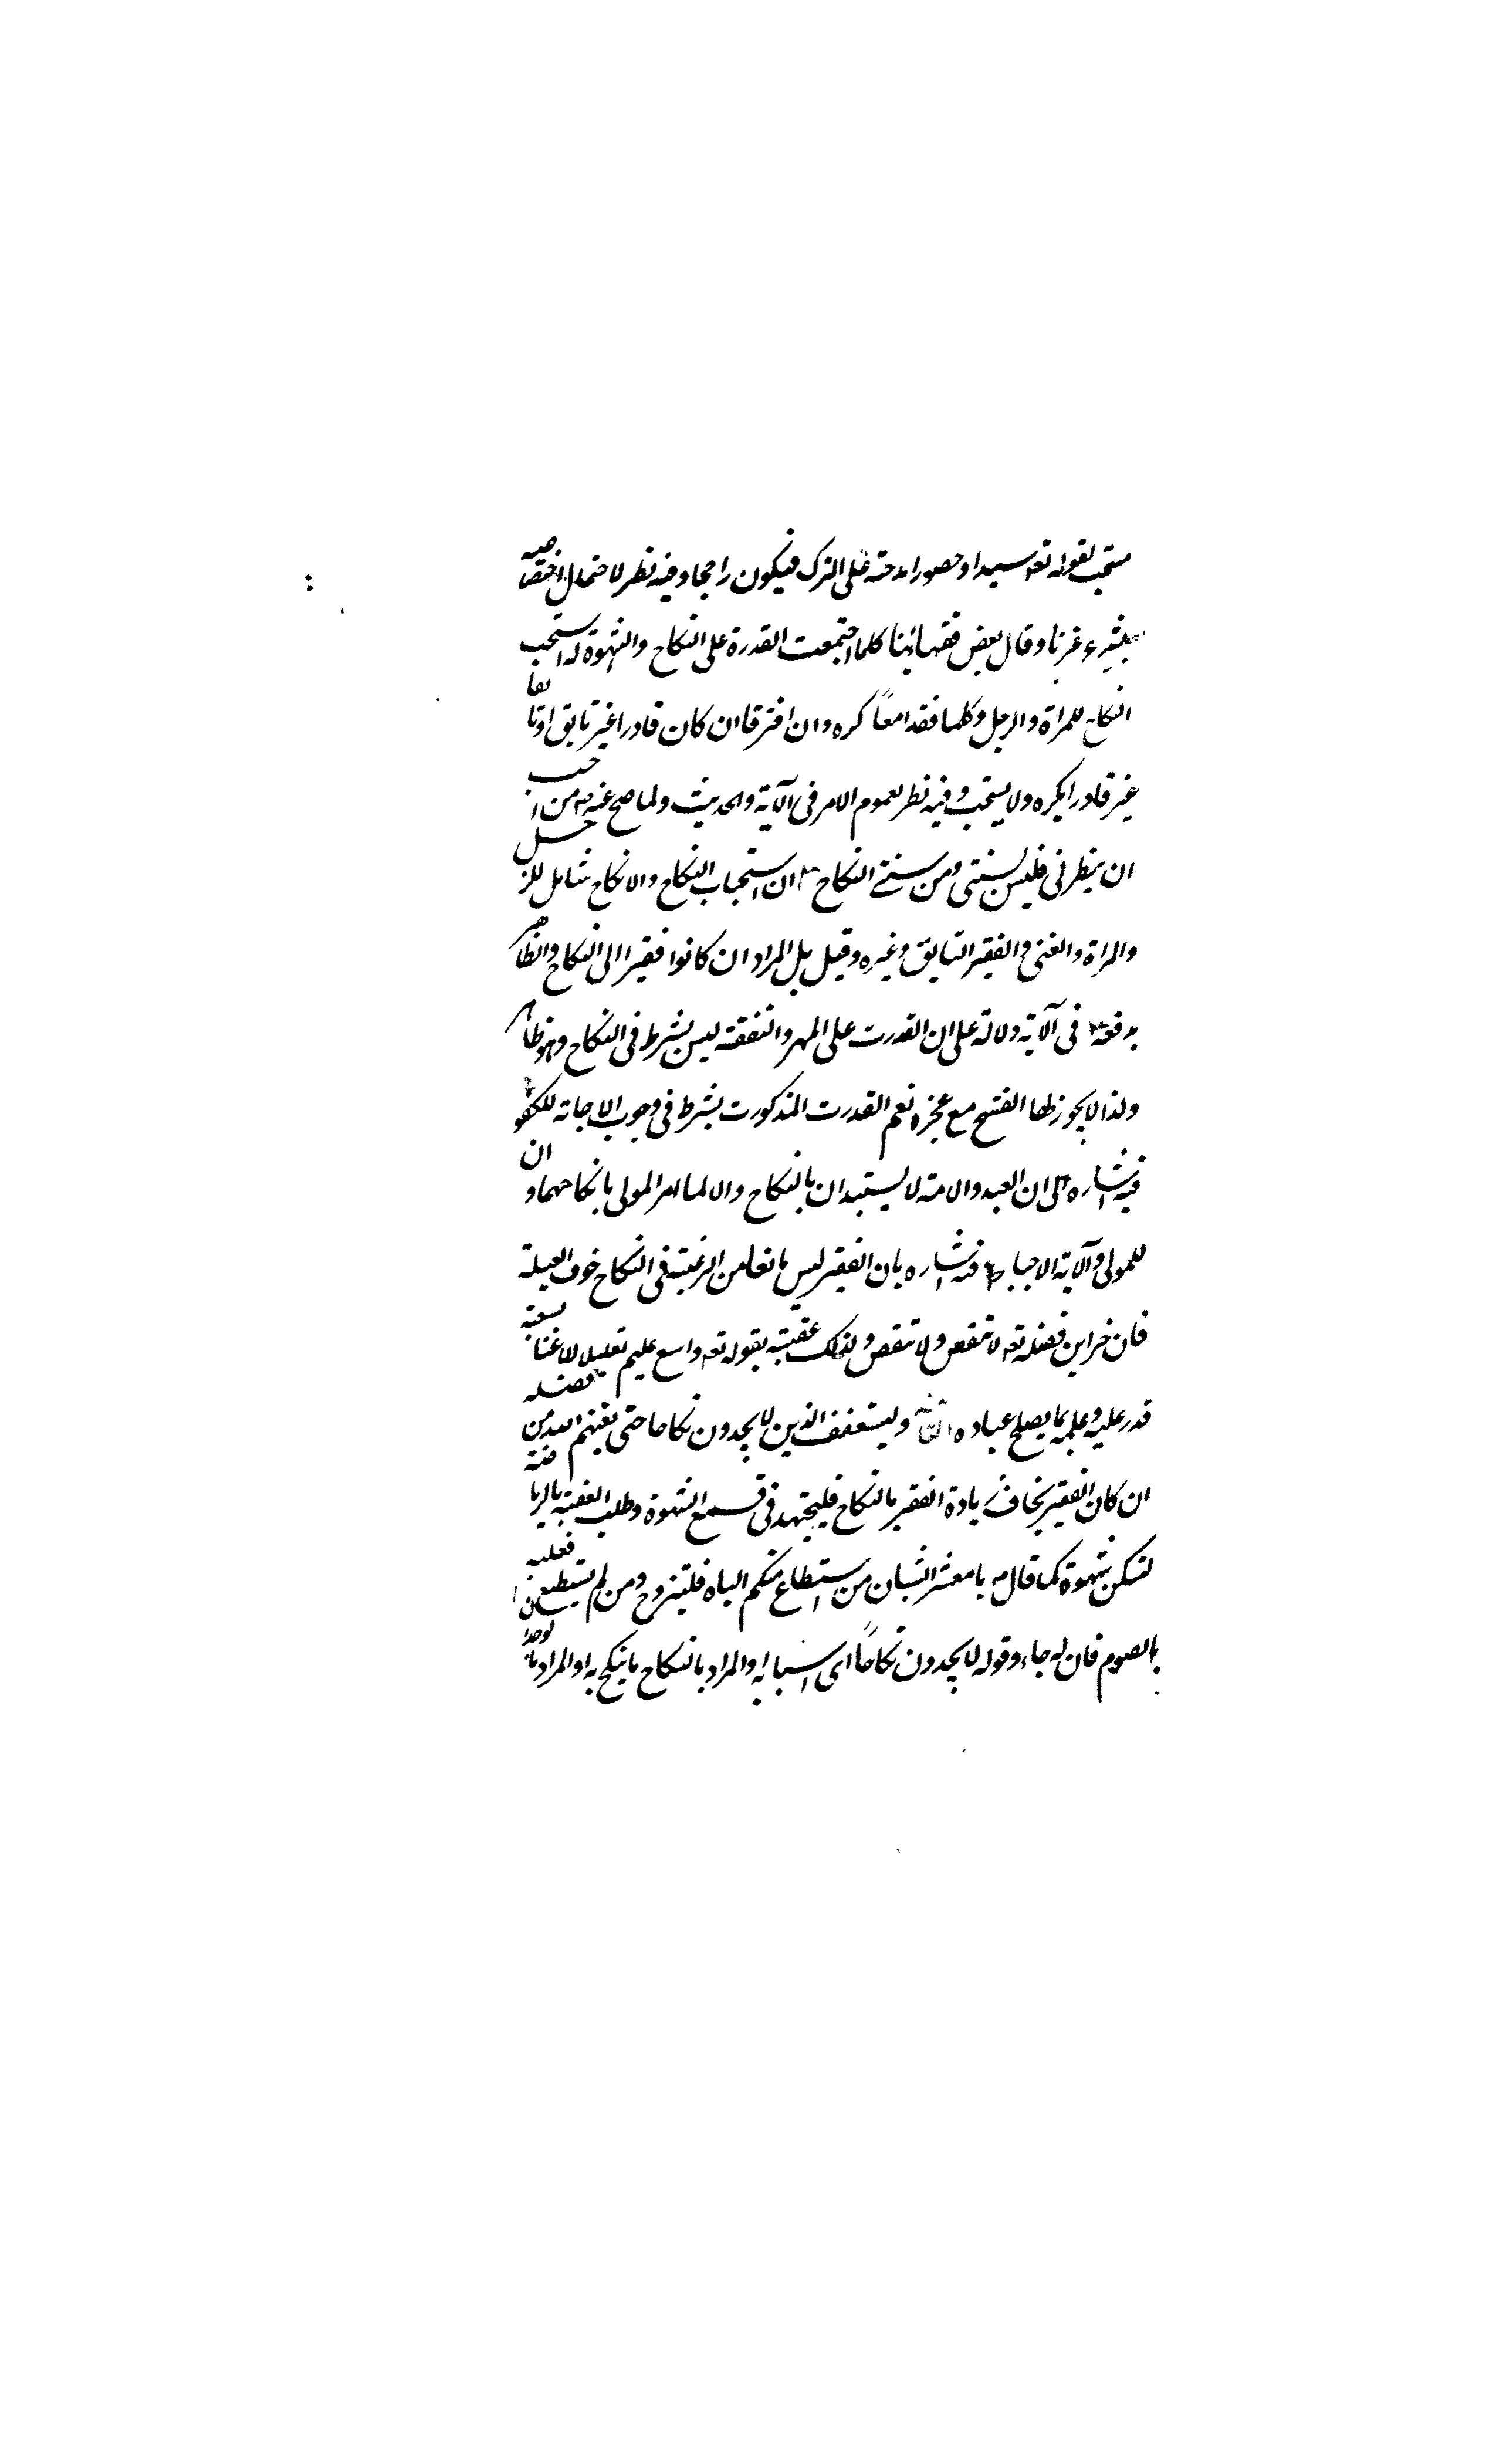 مستحب لقوله تعه سيدا وحصورا مدحته على الترك فيكون راجحا وفيه نظر لاحتمال اختصاصه
بشرع غيرنا وقال بعض فقهائنا كلما اجتمعت القدرة على النكاح والشهوة له استحب
النكاح للمراة والرجل وكلما فقدا معاً كره وان افترقا ان كان قادرا غير تايق او تايقا
غير قادر ايكره ولا يستحب وفيه نظر لعموم الامر فى الآية والحديث ولما صح عنه ص من احب
ان ينظرنى فليستن بسنتى ومن سنتى النكاح ان استحباب النكاح والانكاح شامل للرجل
والمراة والغنى والفقير التايق وغيره وقيل بل المراد ان كانوا فقيرا الى النكاح والظاهر
يدفعه فى الآية دلالة على ان القدرت على المهر والنفقة ليس بشرط فى النكاح وهو ظاهر
ولذا لا يجوز لها الفسخ مع عجزه نعم القدرت المذكورت بشرط فى وجوب الاجابة للكفو
فيه اشاره الى ان العبد والامة لا يستبدان بالنكاح والا لما امر المولى بانكاحهما وان
للمولى ولاية الاجبار فيه اشاره بان الفقير ليس مانعا من الرغبة فى النكاح خوف العيلة
فان خزاين فضله تعه لا تنقص ولا تنقص ولذلك عقبته بقوله تعه واسع عليم تعليل للاغنا بسعة
قدر عليه وعلمه بما يصلح عباده وليستعفف الذين لا يجدون نكاحا حتى يغنيهم الله من فضله
ان كان الفقير يخاف زيادة الفقر بالنكاح فليجتهد فى قمع الشهوة وطلب العفة بالرياضة
لتسكن شهوة كما قال ص يا معشر الشبان من استطاع منكم الباه فليتزوج ومن لم يستطيع فعليه
بالصوم فان له جاء وقوله لا يجدون نكاحاً اى اسبابه والمراد بالنكاح ما ينكح به او المراد